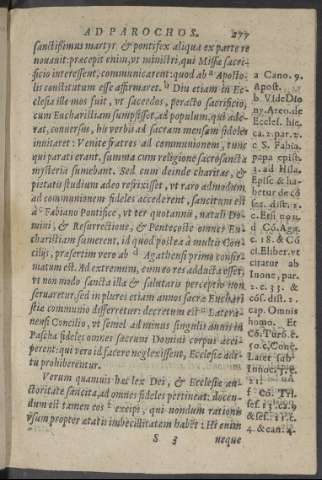 AD PAROCHOS. 277
sanctissimus martyr & pontifex aliqua ex parte re
nouauit: præcepit enim, vt ministri, qui Missæ sacri-
ficio interessent, communicarent: quod ab a Aposto-
lis constitutum esse affirmaret. b Diu etiam in Ec-
clesia ille mos fuit, vt sacerdos, peracto sacrificio,
cum Eucharistiam sumpsisset, ad populum, qui ade-
rat, conuersus, his verbis ad sacram mensam fideles
inuitaret: Venite fratres ad communionem, tunc
qui parati erant, summa cum religione sacrosancta
mysteria sumebant. Sed cum deinde charitas, &
pietatis studium adeo refrixisset, vt raro admodum
ad communionem fideles accederent, sancitum est
à c Fabiano Pontifice, vt ter quotannis, natali Do-
mini, & Resurrectione, & Pentecoste omnes Eu-
charistiam sumerent, id quod postea à multis Con-
cilijs, præsertim vero ab d Agathensi primo confir-
matum est. Ad extremum, cum eo res adducta esset,
vt non modo sancta illa & salutaris præceptio non
seruaretur, sed in plures etiam annos sacræ Euchari
stiæ communio differretur: decretum est e Latera-
nensi Concilio, vt semel ad minus singulis annis in
Pascha fideles omnes sacrum Domini corpus acci-
perent: qui vero id facere neglexissent, Ecclesiæ adi-
tu prohiberentur.
Verum quamuis hæc lex Dei, & Ecclesiæ au-
ctoritate sancita, ad omnes fideles pertineat: docen-
dum est tamen eos f excipi, qui nondum rationis
vsum propter ætatis imbecillitatem habēt: Hi enim
S 3 neque
a Cano. 9.
Apost.
b V. Ide Dio
ny. Areo. de
Eccles. hie.
ca. 2. par. 2.
c S. Fabia.
papa epist.
3. ad Hila.
Episc & ha-
betur de cō
sec. dist. 2.
c. Etsi non.
d Cō. Aga.
c. 18. & Cō
ci. Eliber. vt
citatur ab
Iuone, par.
2. c. 33. &
cōs. dist. 2.
cap. Omnis
homo. Et
Cō. Turo. 3.
50. e Conc.
Later sub
Innoc. 3. c.
21.
f Cō. Tri.
sel. 13. ca. 9
& sess. 21. c.
4. & can. 4.